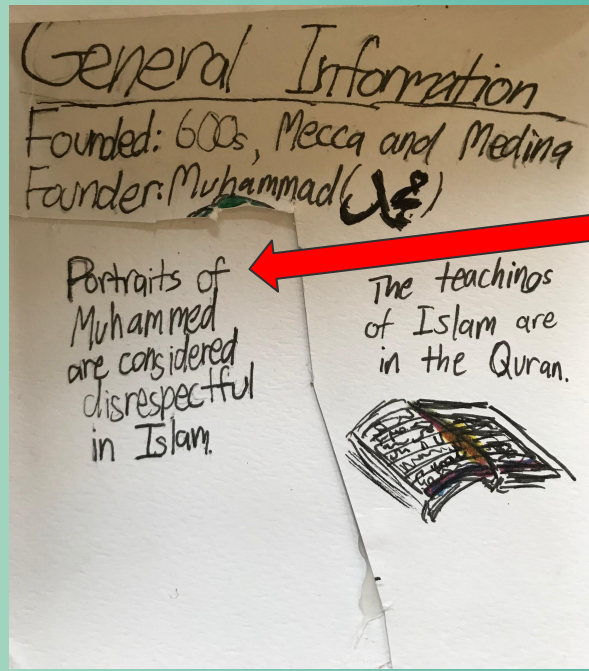 General Information
Founded: 600s, Mecca and Medina
Founder: Muhammad (محمد)
Portraits of
Muhammed
are considered
disrespectful
in Islam.
The teachings
of Islam are
in the Quran.